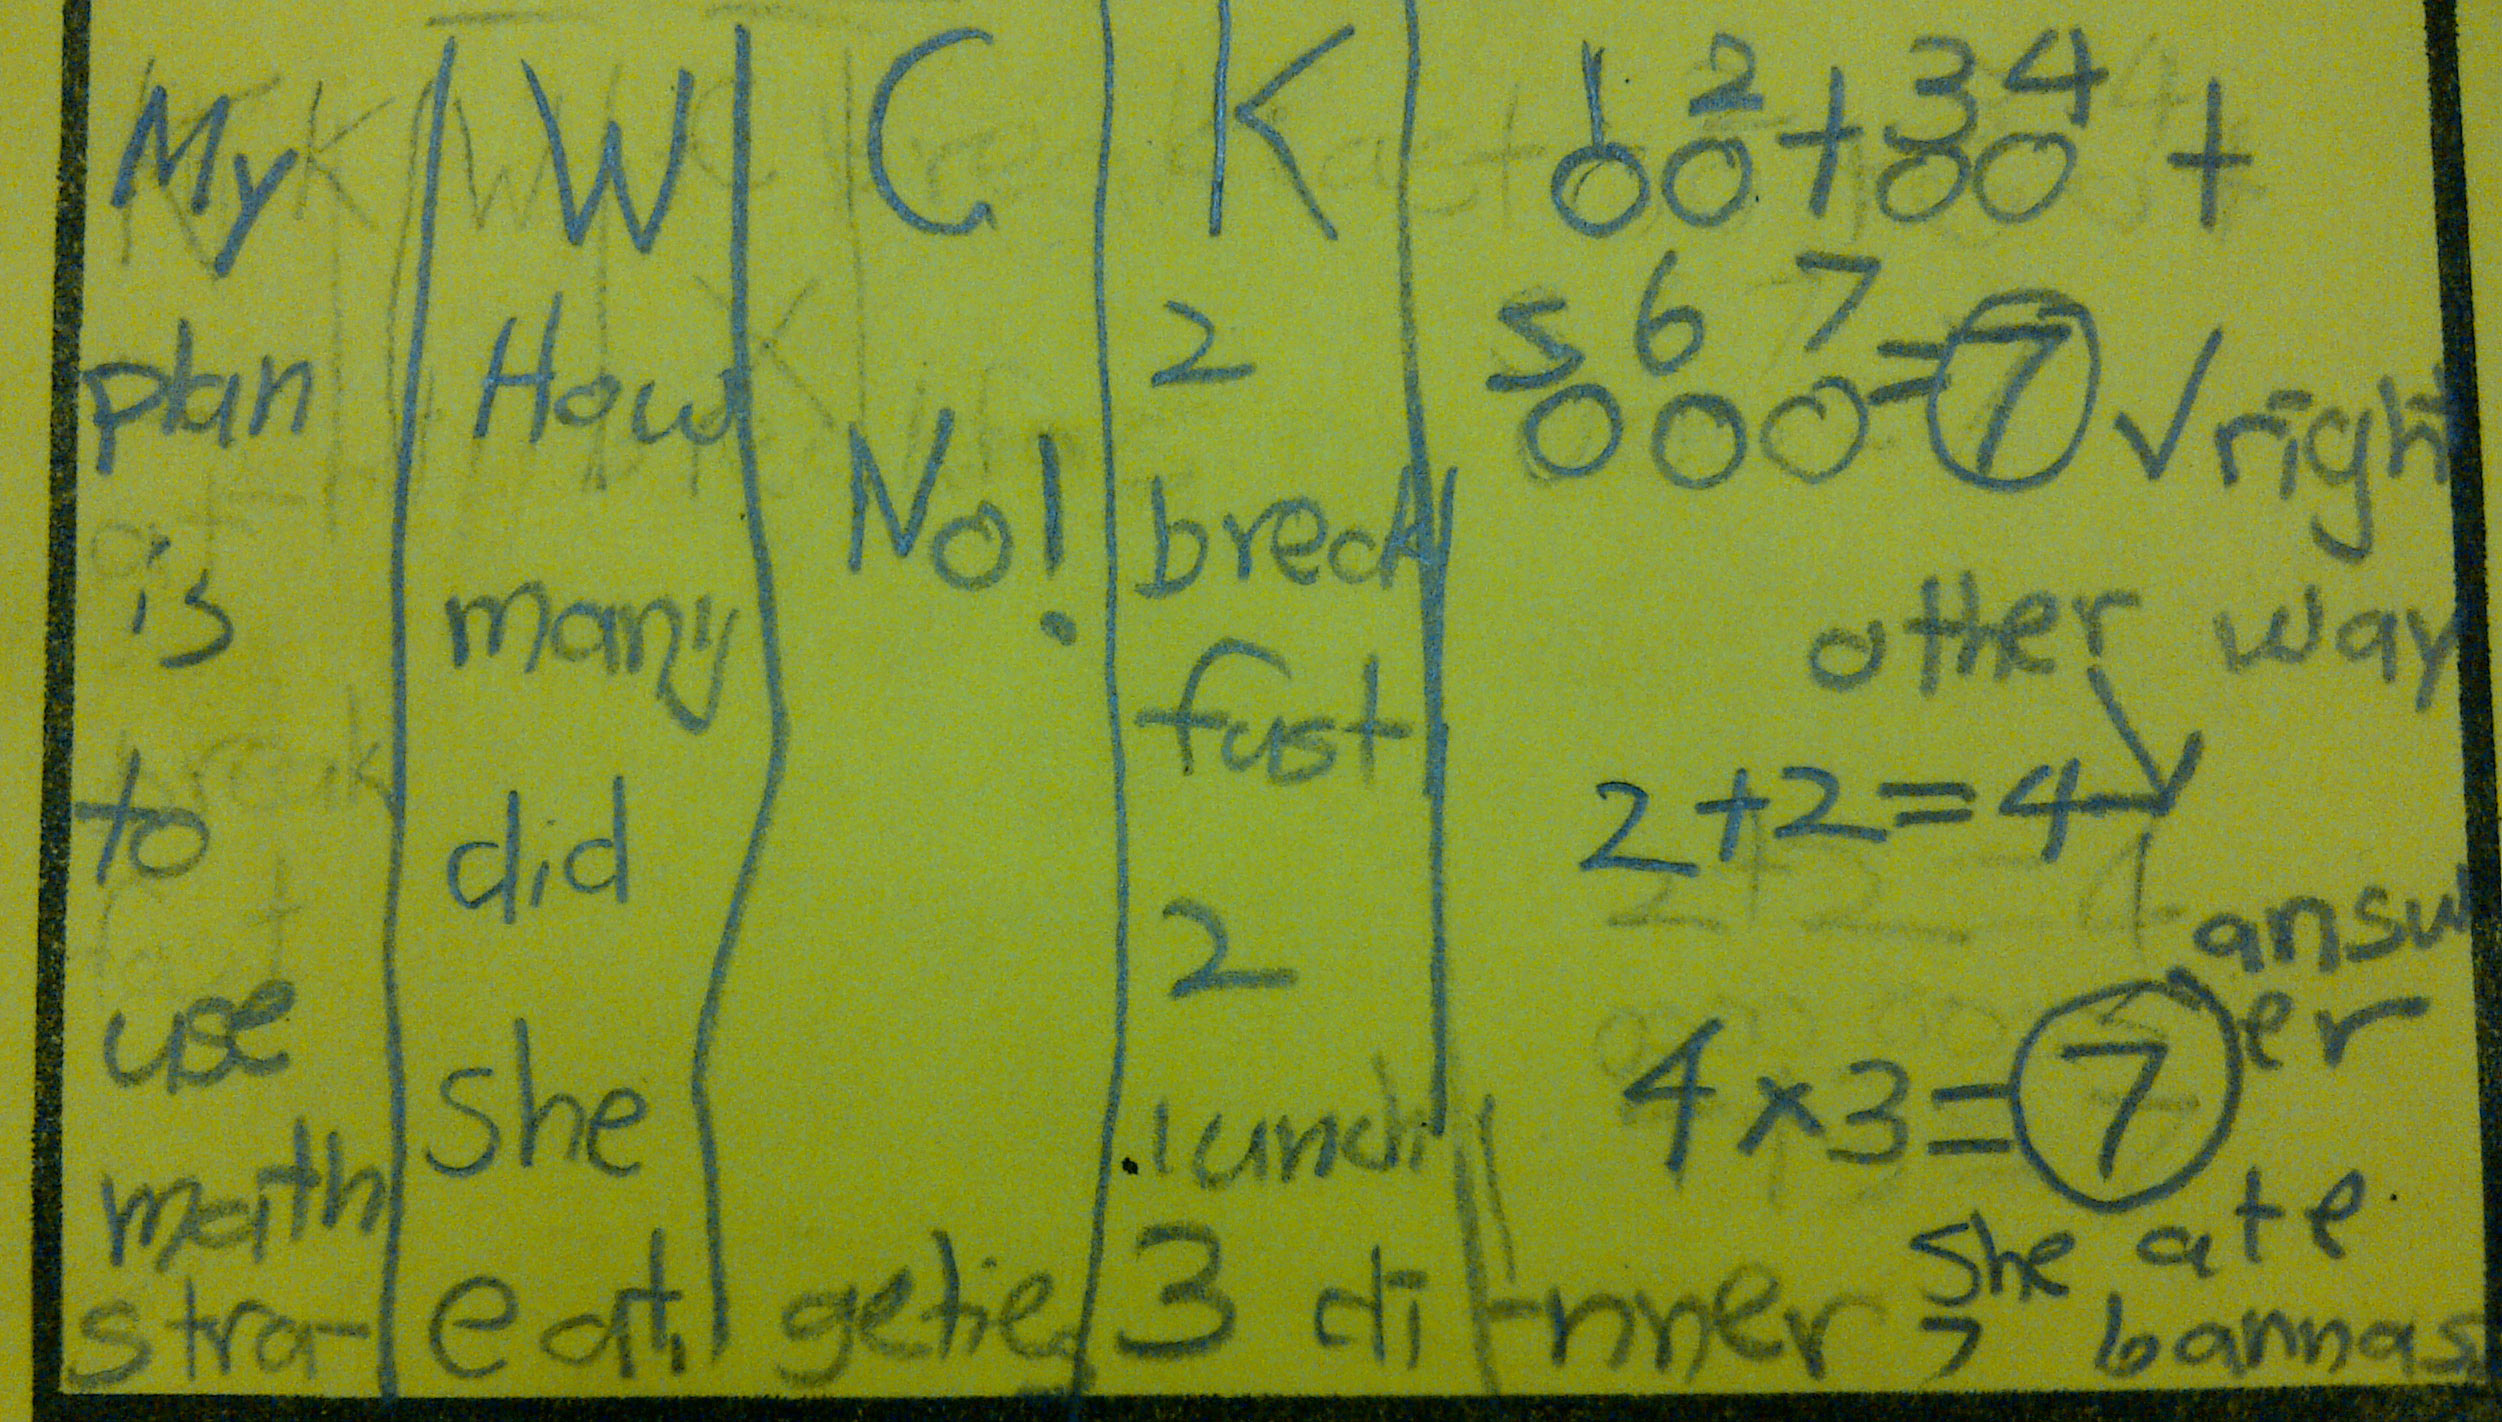 My
plan
is
to
use
math
stra-
W
How
many
did
She
eat.
C
No!
getie
K
2
breck
fust
2
lunch
3 di-nner
1 2 3 4
00+00+
5 6 7
000=7 √ right
other way
2+2=4
4×3=7
answ
er
She ate
7 bannas